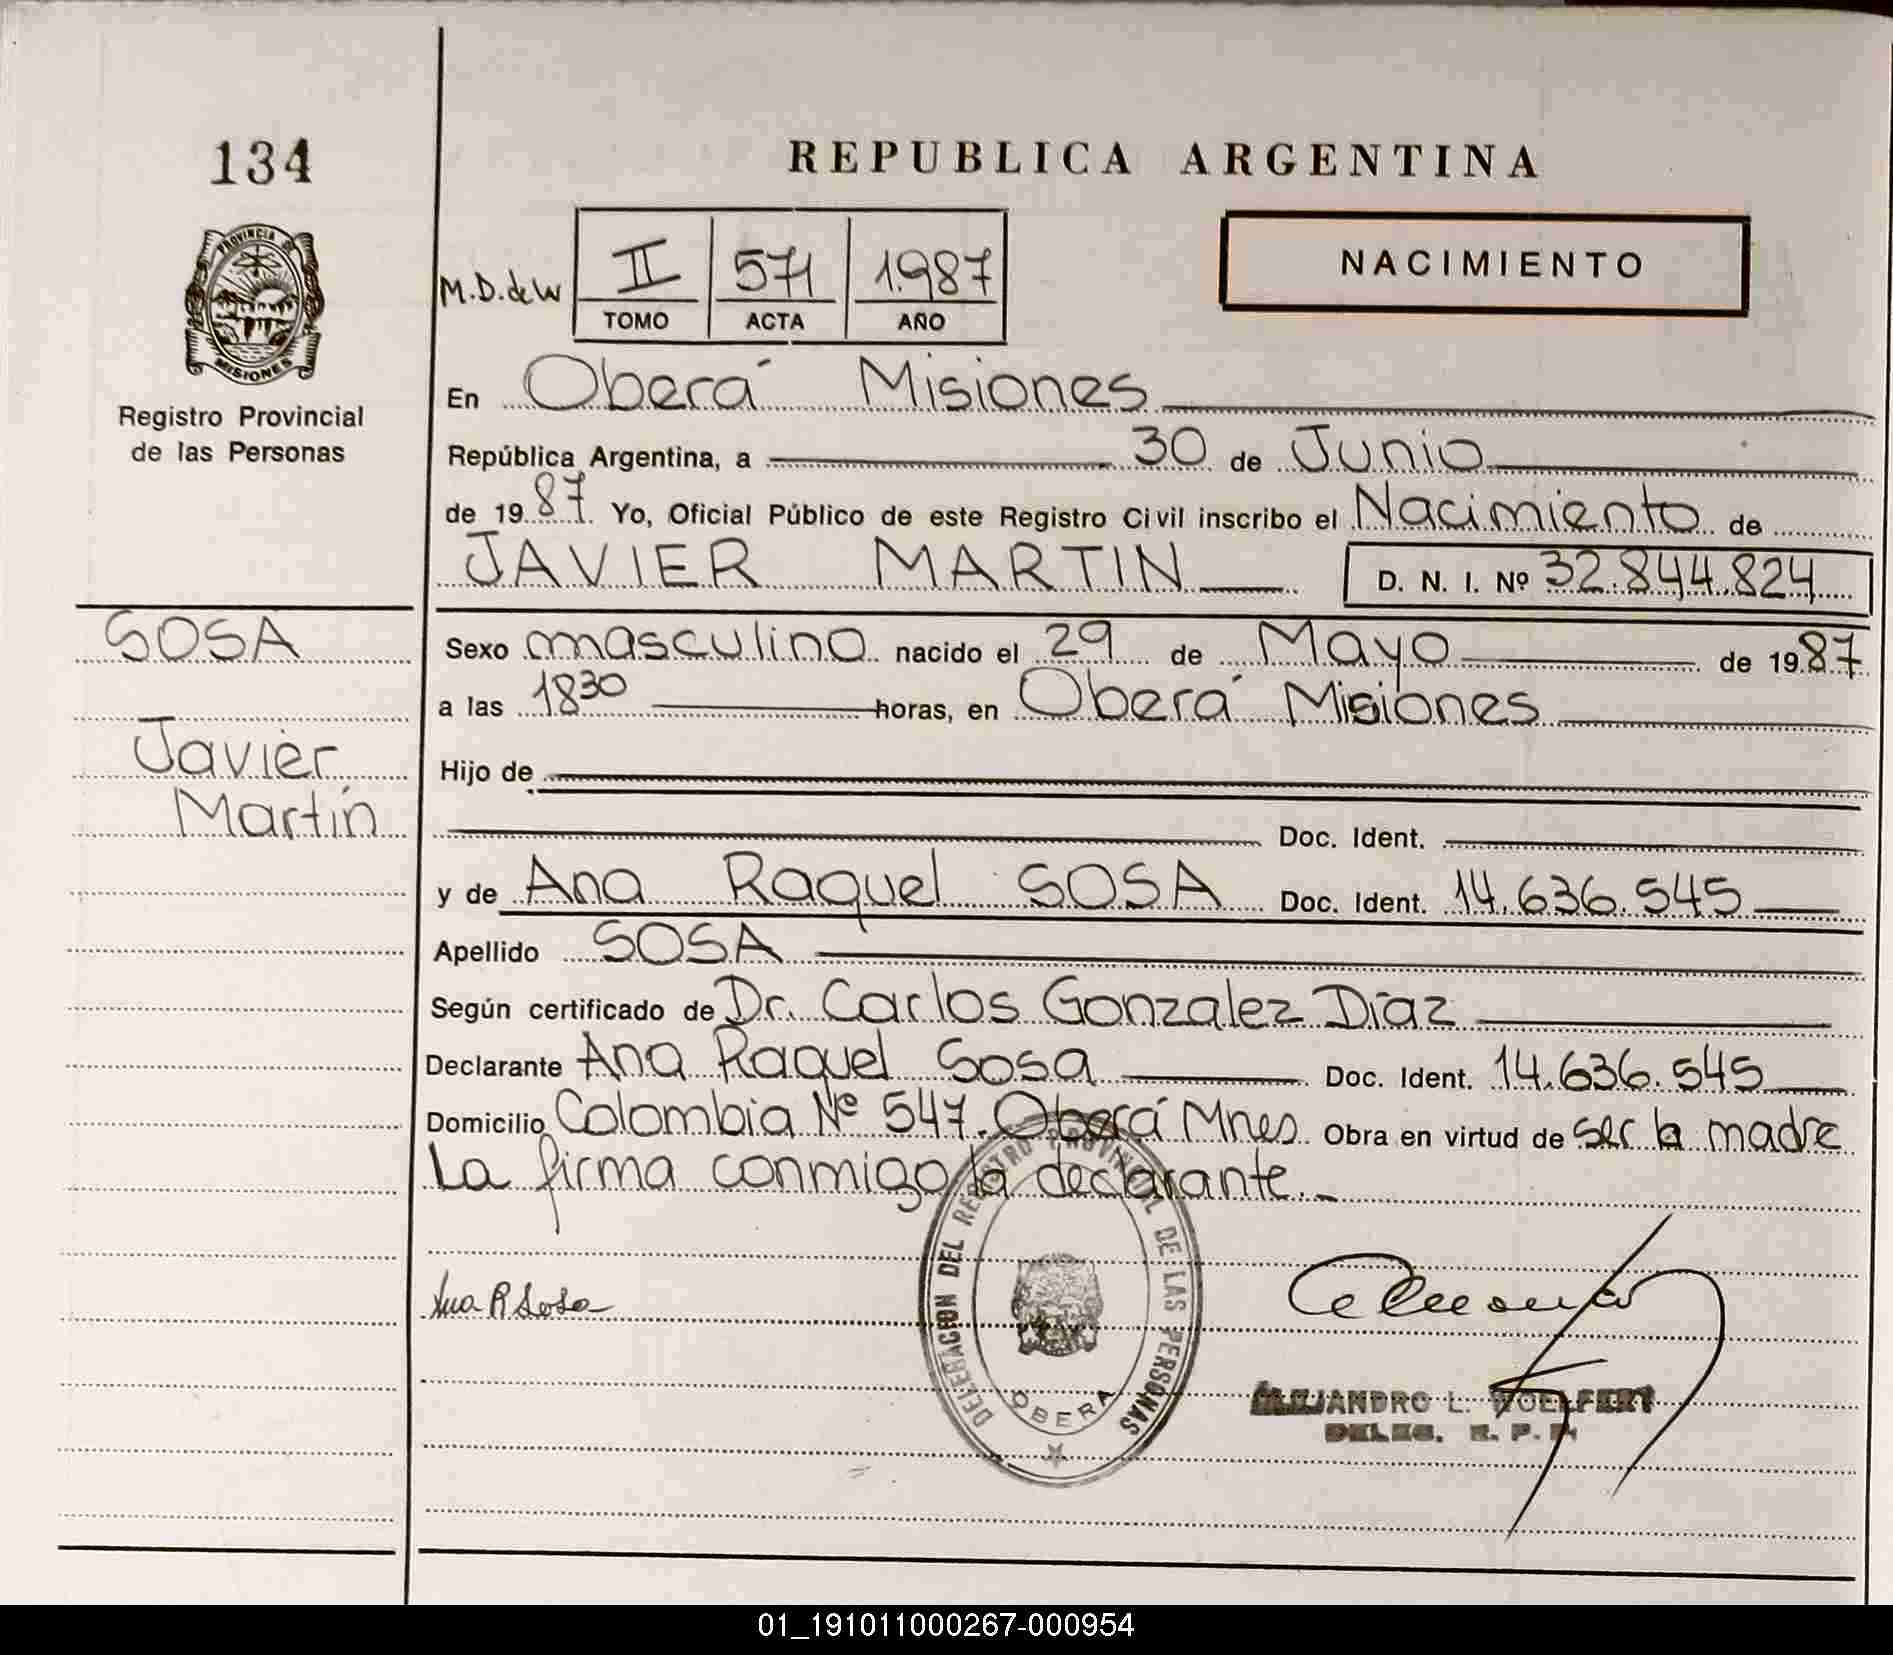 134
REPUBLICA ARGENTINA
PROVINCIA DE
MISIONES
Registro Provincial
de las Personas
M.D. de W
II 571 1.987
TOMO ACTA AÑO
NACIMIENTO
En Oberá Misiones
República Argentina, a 30 de Junio
de 1987. Yo, Oficial Público de este Registro Civil inscribo el Nacimiento de
JAVIER MARTIN D. N. I. Nº 32.844.824
SOSA
Javier
Martín
Sexo masculino nacido el 29 de Mayo de 1987
a las 1830 horas, en Oberá Misiones
Hijo de
Doc. Ident.
y de Ana Raquel SOSA Doc. Ident. 14.636.545
Apellido SOSA
Según certificado de Dr. Carlos Gonzalez Díaz
Declarante Ana Raquel Sosa Doc. Ident. 14.636.545
Domicilio Colombia Nº 547. Oberá Mnes. Obra en virtud de ser la madre
La firma conmigo la declarante.
Ana R Sosa
DELEGACION DEL REGISTRO PROVINCIAL DE LAS PERSONAS
OBERA
ALEJANDRO L. WOELFERT
DELEG. R. P. P.
01_191011000267-000954